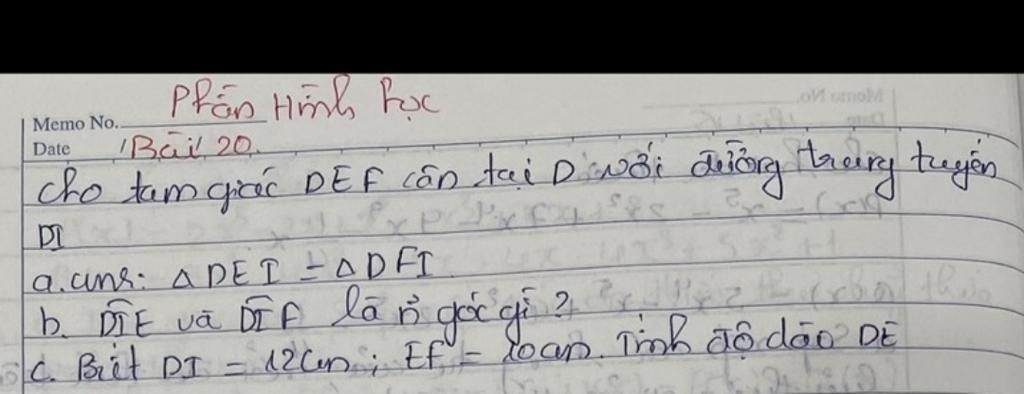 Phần Hình học
Memo No.
Date Bài 20.
Cho tam giác DEF cân tại D với đường trung tuyến
DI
a. cmr: △DEI = △DFI
b. DIE và DIF là n~ góc gì?
c. Biết DI = 12cm; EF = 10cm. Tính độ dài DE